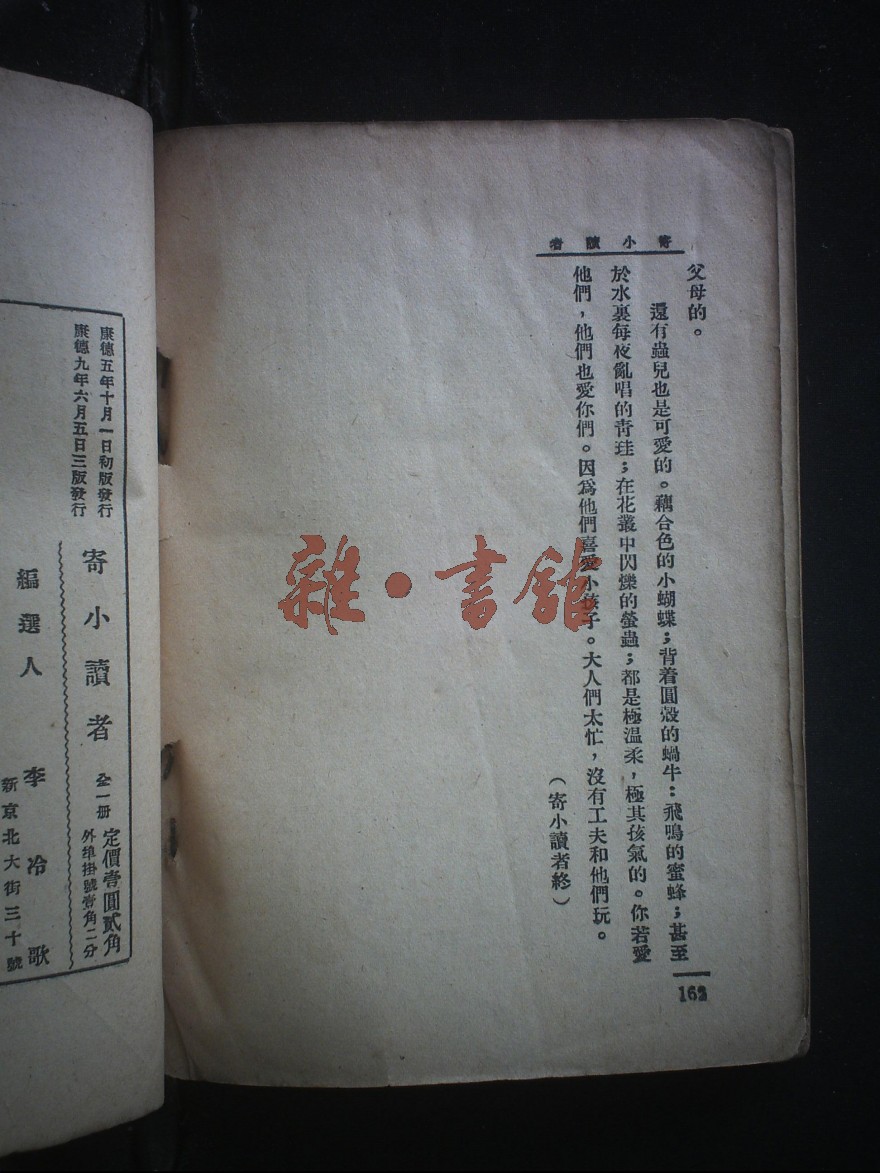 寄小讀者
父母的。
還有蟲兒也是可愛的。藕合色的小蝴蝶；背着圓殼的蝸牛：飛鳴的蜜蜂；甚至
於水裏每夜亂唱的青珪；在花叢中閃爍的螢蟲；都是極温柔，極其孩氣的。你若愛
他們，他們也愛你們。因爲他們喜愛小孩子。大人們太忙，沒有工夫和他們玩。
（寄小讀者終）
163
雜·書館
康德五年十月一日初版發行
康德九年六月五日三版發行
寄小讀者
全一册
定價壹圓貳角
外埠掛號壹角二分
編選人 李冷歌
新京北大街三十號